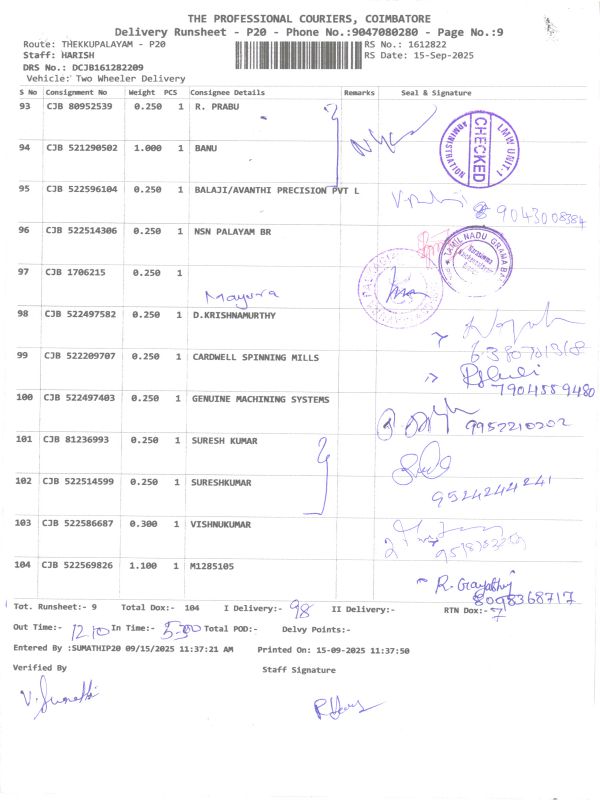 THE PROFESSIONAL COURIERS, COIMBATORE
Delivery Runsheet - P20 - Phone No.:9047080280 - Page No.:9
Route: THEKKUPALAYAM - P20 RS No.: 1612822
Staff: HARISH RS Date: 15-Sep-2025
DRS No.: DCJB161282209
Vehicle: Two Wheeler Delivery
S No Consignment No Weight PCS Consignee Details Remarks Seal & Signature
93 CJB 80952539 0.250 1 R. PRABU
LMW UNIT-1 CHECKED ADMINISTRATION
94 CJB 521290502 1.000 1 BANU
95 CJB 522596104 0.250 1 BALAJI/AVANTHI PRECISION PVT L
9043008384
96 CJB 522514306 0.250 1 NSN PALAYAM BR
TAMIL NADU GRAMA BANK
97 CJB 1706215 0.250 1
Mayura
98 CJB 522497582 0.250 1 D.KRISHNAMURTHY
99 CJB 522209707 0.250 1 CARDWELL SPINNING MILLS
7904559480
100 CJB 522497403 0.250 1 GENUINE MACHINING SYSTEMS
9952210202
101 CJB 81236993 0.250 1 SURESH KUMAR
102 CJB 522514599 0.250 1 SURESHKUMAR
9524244241
103 CJB 522586687 0.300 1 VISHNUKUMAR
104 CJB 522569826 1.100 1 M1285105
R. Gayathiri
8098368717
Tot. Runsheet:- 9 Total Dox:- 104 I Delivery:- 98 II Delivery:- RTN Dox:- 7
Out Time:- 12.10 In Time:- 5.30 Total POD:- Delvy Points:-
Entered By :SUMATHIP20 09/15/2025 11:37:21 AM Printed On: 15-09-2025 11:37:50
Verified By Staff Signature
V. Sumathi